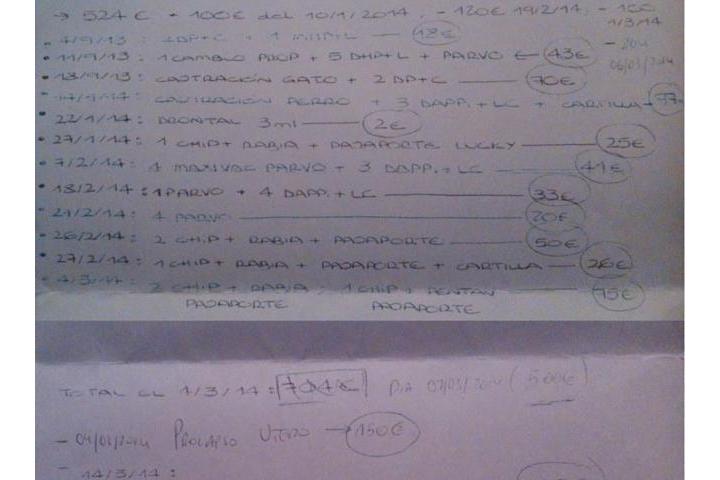 → 524 € - 100€ del 10/1/2014, - 120€ 19/2/14, - 100
1/3/14
• 4/9/13 : 2DP+C + 1
• 11/9/13 : 1 CAMBIO PROP + 5 DHP+L + PARVO ← 43€
• 13/9/13 : CASTRACIÓN GATO + 2 DP+C — 70€
CASTRACIÓN PERRO + 3 DAPP.+LC + CARTILLA
• 22/1/14 : DRONTAL 3ml — 2€
• 27/1/14 : 1 CHIP + RABIA + PASAPORTE LUCKY — 25€
• 7/2/14 : 1 MAXIVAC PARVO + 3 DAPP.+LC — 41€
• 18/2/14 : 1 PARVO + 4 DAPP.+LC — 33€
• 21/2/14 : 4 PARVO — 20€
• 26/2/14 : 2 CHIP + RABIA + PASAPORTE — 50€
• 27/2/14 : 1 CHIP + RABIA + PASAPORTE + CARTILLA — 26€
• 4/3/14 : 2 CHIP + RABIA , 1 CHIP + PENTAN 75€
PASAPORTE PASAPORTE
TOTAL EL 4/3/14 : 704€ DIA 07/03/2014 (500€)
- PROLAPSO UTERO → 150€
- 14/3/14 :